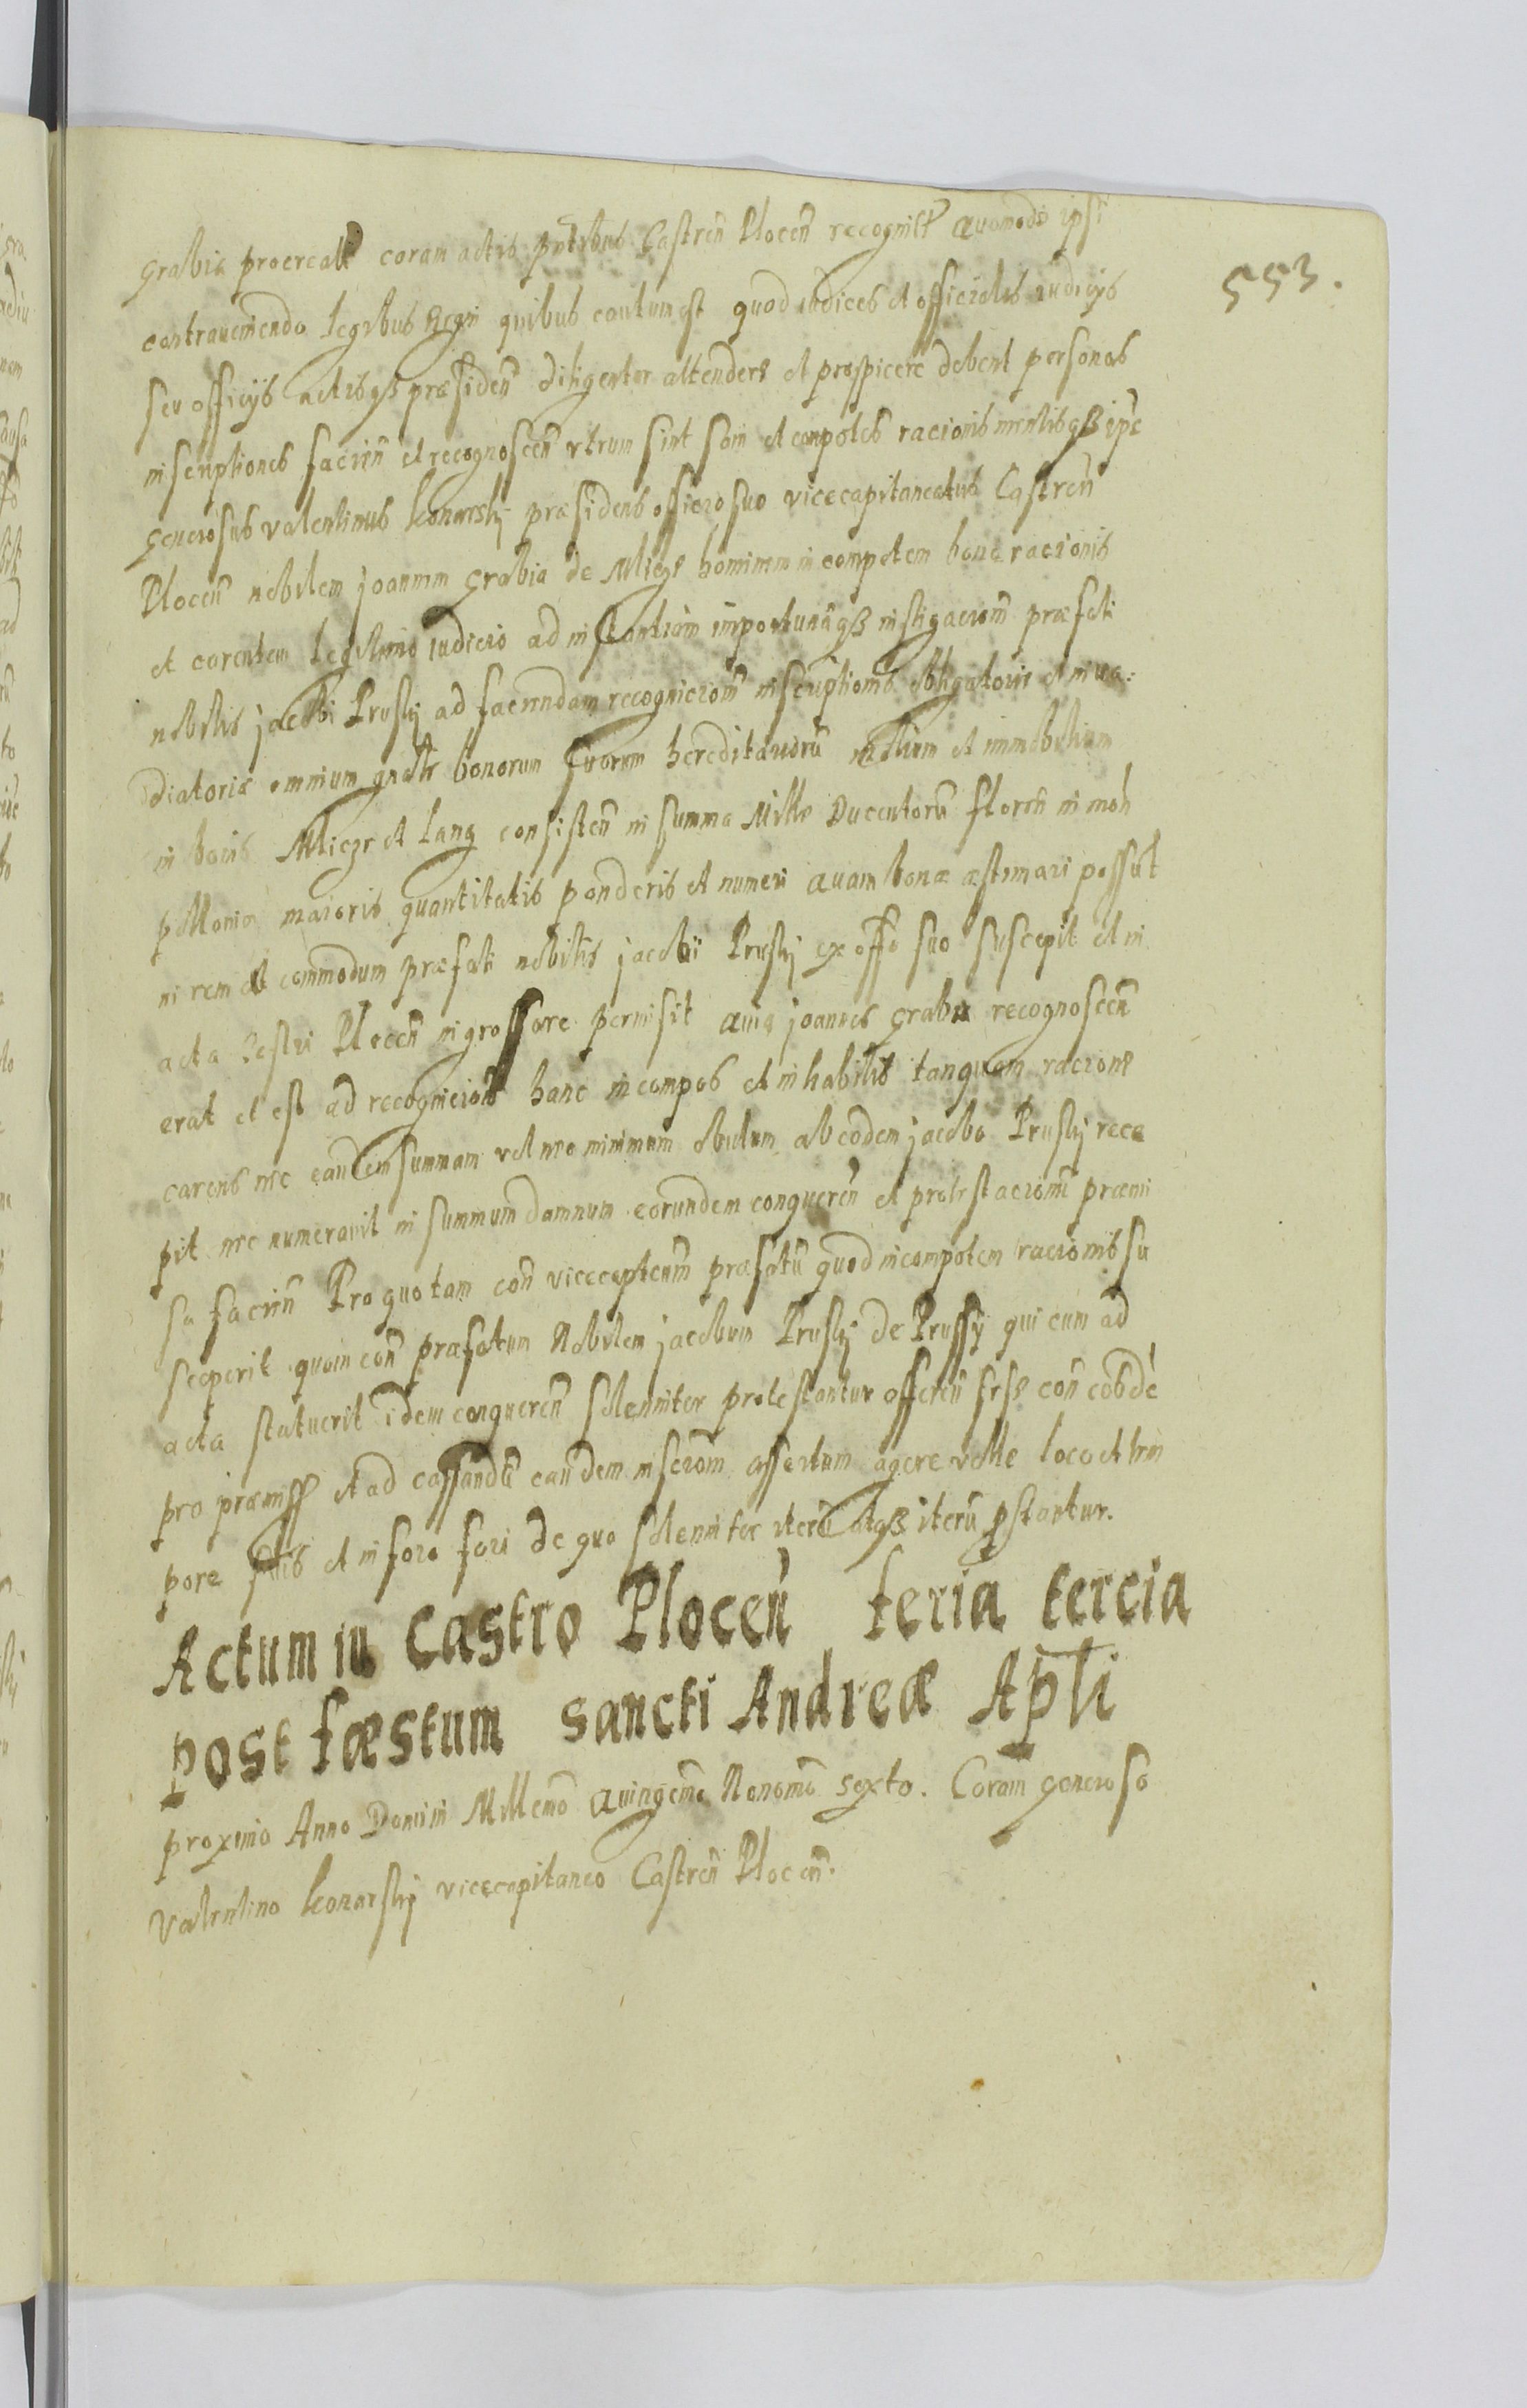 553.
Grabia procreati coram actis pntibus Castren Plocen recognit Quomodo ipsi
contraueniendo legibus Regni quibus cautum est quod iudices et officiales iudicijs
seu officijs actisqz præsiden diligenter attendere et prospicere debent personas
inscriptiones facien et recognoscen vtrum sint sani et compotes racionis mentisqz ipse
Generosus Valentinus Konarskj præsidens officio suo vicecapitaneatus Castren
Plocen nobilem Joannem Grabia de Milicze hominem incompotem bone racionis
et carentem legitimo iudicio ad instantiam importunaqz instigacionem præfati
nobilis Jacobi Pruskj ad faciendam recognicionem inscriptionis obligatorie et inua:
diatorie omnium gnalr bonorum suorum hereditariorū mobilium et immobilium
in bonis Milicze et Lang consisten in summa Mille Ducentorū floren in mon
polloni maioris quantitatis ponderis et numeri Quam bona æstimari possūt
in rem et commodum præfati nobilis Jacobi Pruskj ex offo suo suscepit et in
acta Castri Plocen ingrossare permisit Quia Joannes Grabia recognoscen
erat et est ad recognicionē hanc incompos et inhabilis tanquam racione
carens nec eandem summam vel nec minimum obulum ab eodem Jacobo Pruskj rece
pit nec numerauit in summum damnum eorundem conqueren et protestacionem præmi
sa facien Pro quo tam con vicecaptenm præfatū quod incompotem racionis su
sceperit quam con præfatum Nobilem Jacobum Pruskj de Prussy qui eum ad
acta statuerit idem conqueren solenniter protestantur offeren sese con eosdē
pro præmiss et ad cassandū eandem inscrōm assertam agere velle loco et tem
pore suis et in foro fori de quo solenniter iterū atqz iterū pstantur.
Actum in Castro Plocen feria tercia
post fæstum sancti Andreæ Apli
proximo Anno Domini Millemo Quingemo Nonomo sexto. Coram generoso
Valentino Konarskj vicecapitaneo Castren Plocen.